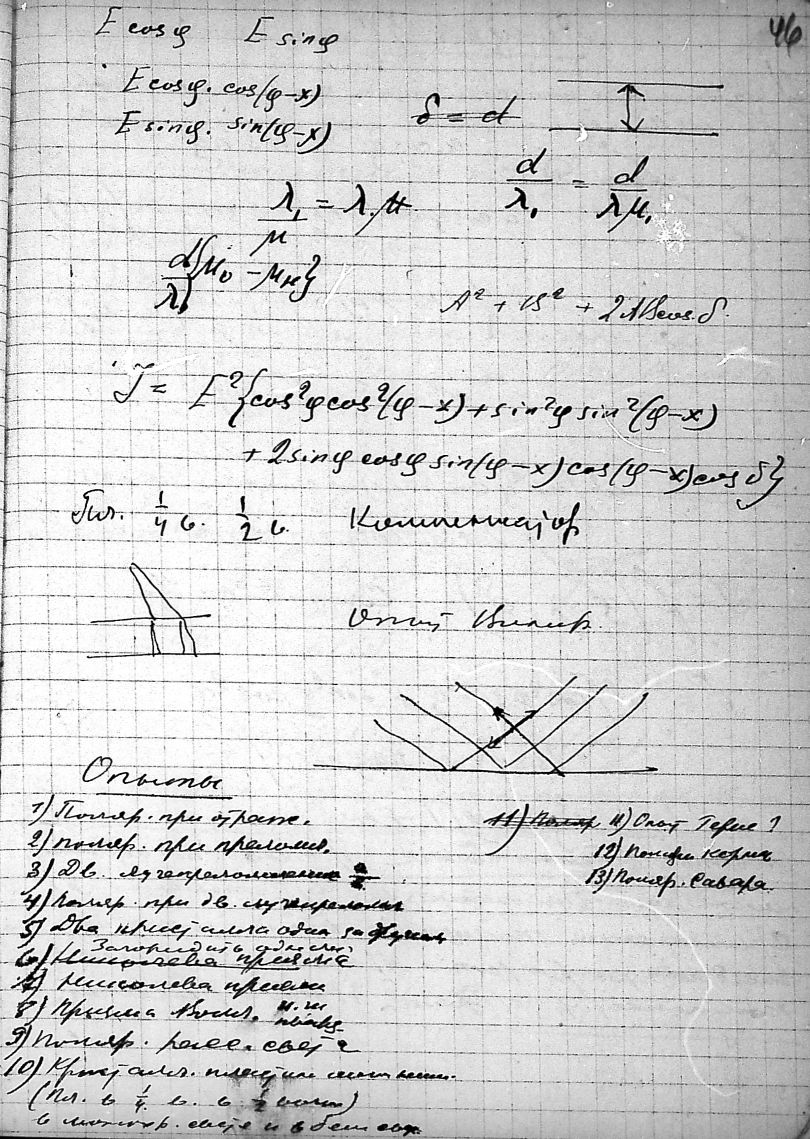 46
E cosφ E sinφ
E cosφ. cos(φ-x)
E sinφ. sin(φ-x)
δ = d
d/λ₁ = d/λμ₁
λ₁/μ = λ.μ
d/λ {μ₀ - μн}
A² + B² + 2AB cos δ.
J = E²{cos²φ cos²(φ-x) + sin²φ sin²(φ-x)
+ 2 sinφ cosφ sin(φ-x) cos(φ-x) cos δ}
Пл. 1/4 в. 1/2 в. Компенсатор
Опыт Винер.
Опыты
1) Поляр. при отраж.
2) поляр. при преломл.
3) Дв. лучепреломление
4) Поляр. при дв. лучепреломл
5) Два кристалла один за другим
Загородить один луч
6) Николева призма
7) Николева призма
8) Призма Волл.
9) Поляр. расс. света
10) Кристалл. пластин
(Пл. в 1/4 в. в 1/2 волн)
в монохр. свете и в бел свет
11) Поляр. 11) Опыт
12) Поляр. Керр
13) Поляр. Савара.